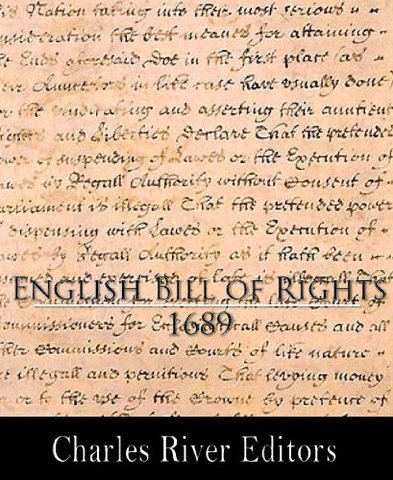 is Nation taking into their most serious
nsideration the best meanes for attaining
he Ends aforesaid Doe in the first place (as
eir Auncestors in like case have usually done)
or the vindicating and asserting their auntient
rights and Liberties, Declare That the pretended
ower of suspending of Lawes or the Execution of
awes by Regall Authority without Consent of
arliament is illegall That the pretended power
dispensing with Lawes or the Execution of
awes by Regall Authority as it hath been
ENGLISH BILL OF RIGHTS
1689
ommissioners for Causes and all
ther Commissions and Courts of like nature
re illegall and pernitious That levying money
or or to the use of the Crowne by pretence of
Charles River Editors